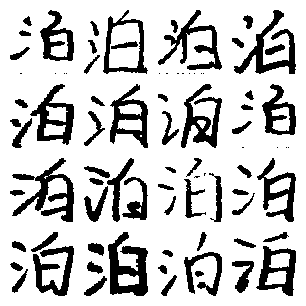 泊泊泊泊
泊泊泊泊
泊泊泊泊
泊泊泊泊